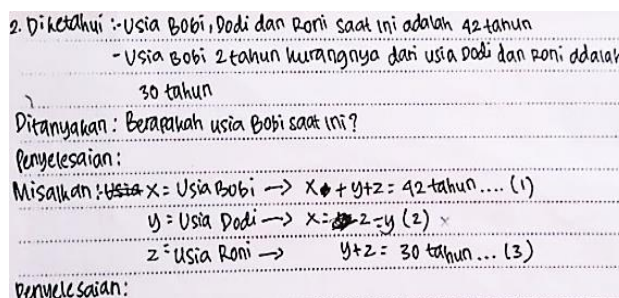 2. Diketahui :- Usia Bobi, Dodi dan Roni saat ini adalah 42 tahun
- Usia Bobi 2 tahun kurangnya dari usia Dodi dan Roni adalah
30 tahun
Ditanyakan : Berapakah usia Bobi saat ini?
Penyelesaian :
Misalkan : x = Usia Bobi → x + y + z = 42 tahun .... (1)
y = Usia Dodi → x = 2 - y (2) ×
z = Usia Roni → y + z = 30 tahun ... (3)
Penyelesaian :